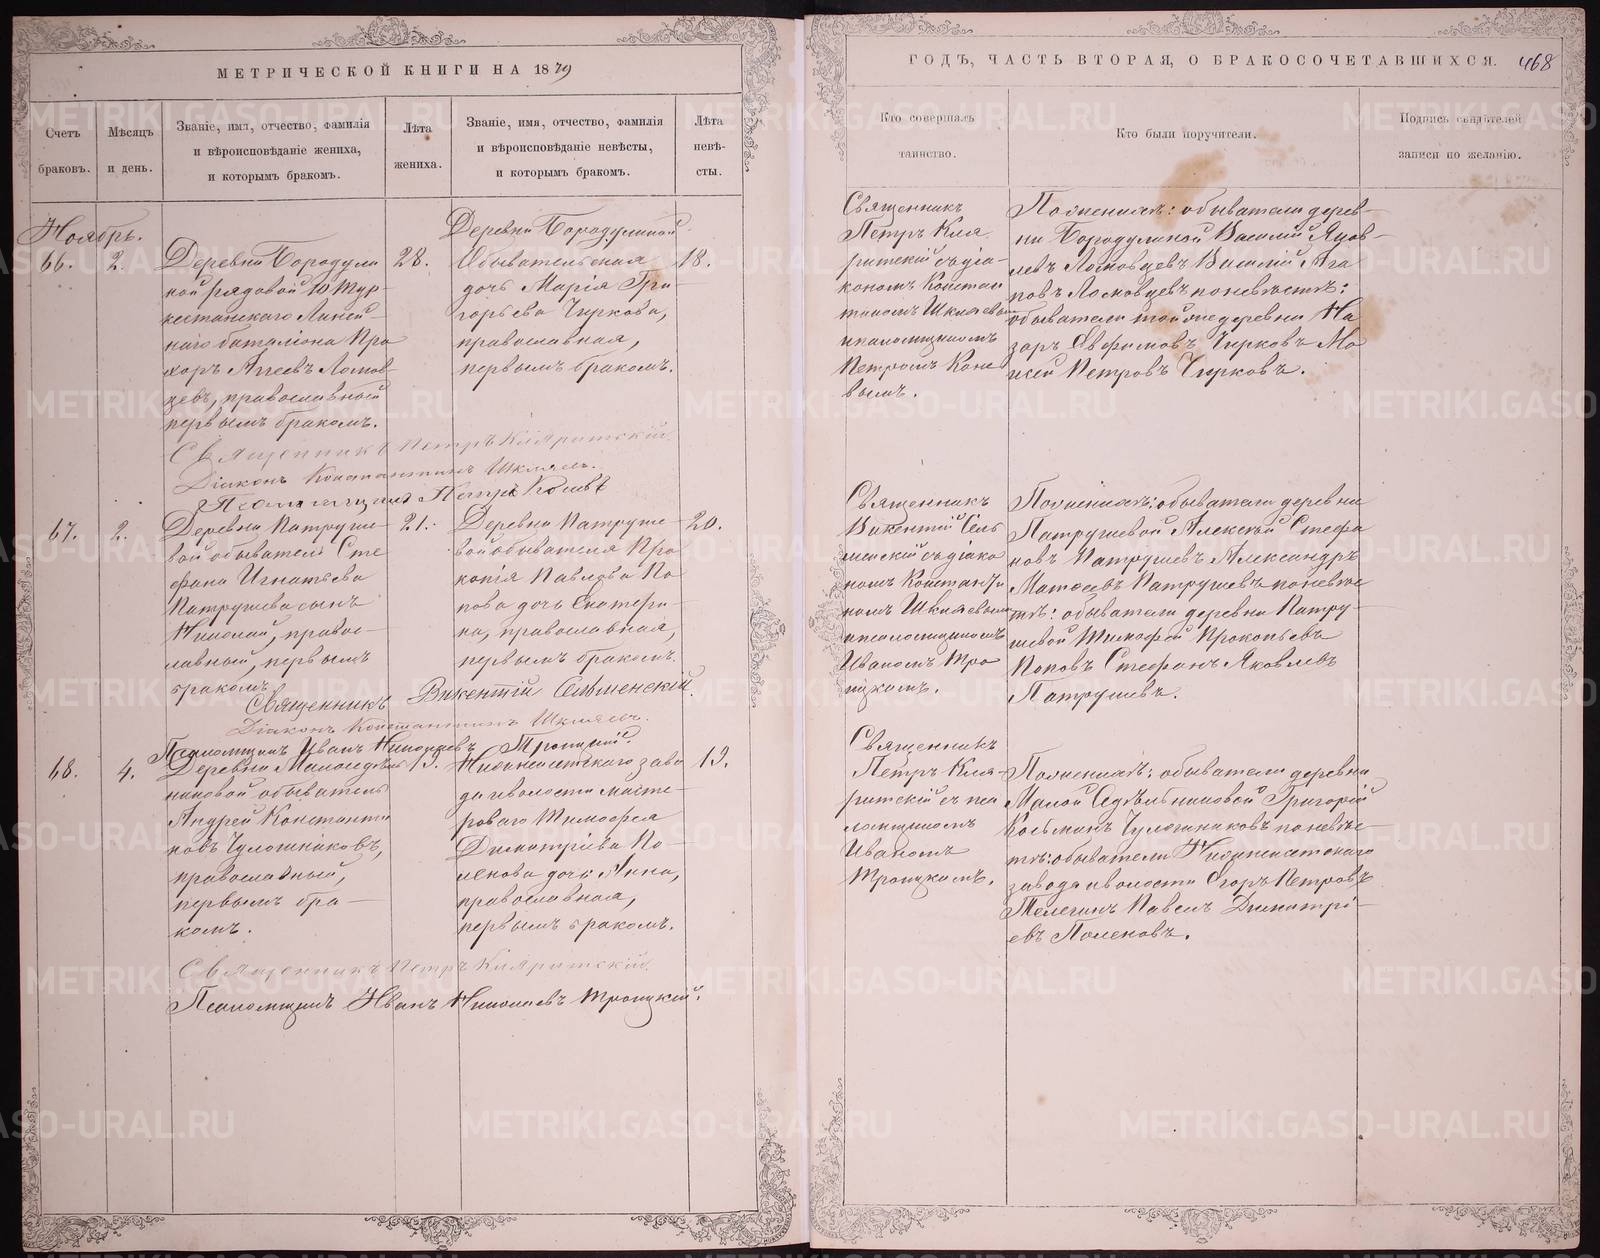 МЕТРИЧЕСКОЙ КНИГИ НА 1879
Счетъ браковъ.
Мѣсяцъ и день.
Званіе, имя, отчество, фамилія
и вѣроисповѣданіе жениха,
и которымъ бракомъ.
Лѣта жениха.
Званіе, имя, отчество, фамилія
и вѣроисповѣданіе невѣсты,
и которымъ бракомъ.
Лѣта невѣ-
сты.
Ноябрь.
66.
2.
Деревни Бородули
ной рядовой 10 Тур-
кестанскаго Линей-
наго баталіона Про
хоръ Агѣевъ Ломов-
цевъ, православный
первымъ бракомъ.
28.
Деревни Бородулиной
Обывательская
дочь Марія Гри-
горьева Чиркова,
православная,
первымъ бракомъ.
18.
Священникъ Петръ Кляритскій
Діаконъ Константинъ Шкляевъ.
Псаломщикъ Петръ
67.
2.
Деревни Патруше-
вой обывателя Сте
фана Игнатьева
Патрушева сынъ
Николай, правос-
лавный, первымъ
бракомъ
21.
Деревни Патруше
вой обывателя Про
копія Павлова По
пова дочь Екатери-
на, православная,
первымъ бракомъ.
20.
Священникъ Викентій Сельменскій.
Діаконъ Константинъ Шкляевъ.
Псаломщикъ Иванъ Николаевъ Троицкій.
68.
4.
Деревни
никовой обыватель
Андрей Константи
новъ Чулошниковъ,
православный,
первымъ бра-
комъ.
19.
Нижнеисетскаго заво
да и волости масте-
роваго Тимофея
Димитріева По-
ленова дочь Анна,
православная,
первымъ бракомъ.
19.
Священникъ Петръ Кляритскій.
Псаломщикъ Иванъ Николаевъ Троицкій.
ГОДЪ, ЧАСТЬ ВТОРАЯ, О БРАКОСОЧЕТАВШИХСЯ.
468
Кто совершалъ
таинство.
Кто были поручители.
Подпись свидѣтелей
записи по желанію.
Священникъ
Петръ Кля
ритскій съ діа-
кономъ Констан
тиномъ Шкляевымъ
и псаломщикомъ
Петромъ Коне
вымъ.
По женихѣ: обыватели дерев-
ни Бородулиной Василій
Ломовцевъ Василій Ага
повъ Ломовцевъ по невѣстѣ:
обыватели той же деревни На
заръ Евфимовъ Чирковъ Мо
исей Петровъ Чирковъ.
Священникъ
Викентій Сель
менскій съ діако
номъ Константи
номъ Шкляевымъ
и псаломщикомъ
Иваномъ Тро
ицкомъ.
По женихѣ: обыватели деревни
Патрушевой Алексѣй Стефа
новъ Патрушевъ Александръ
Матѳеевъ Патрушевъ по невѣс
тѣ: обыватели деревни Патру-
шевой Тимофей Прокопьевъ
Поповъ Стефанъ Яковлевъ
Патрушевъ.
Священникъ
Петръ Кля-
ритскій съ пса
ломщикомъ
Иваномъ
Троицкомъ.
По женихѣ: обыватели деревни
Малой Сѣдѣльниковой Григорій
Козьминъ Чулошниковъ по невѣс-
тѣ: обыватели Нижнеисетскаго
завода и волости Егоръ Петровъ
Телегинъ Павелъ Димитрі-
евъ Поленовъ.
METRIKI.GASO-URAL.RU